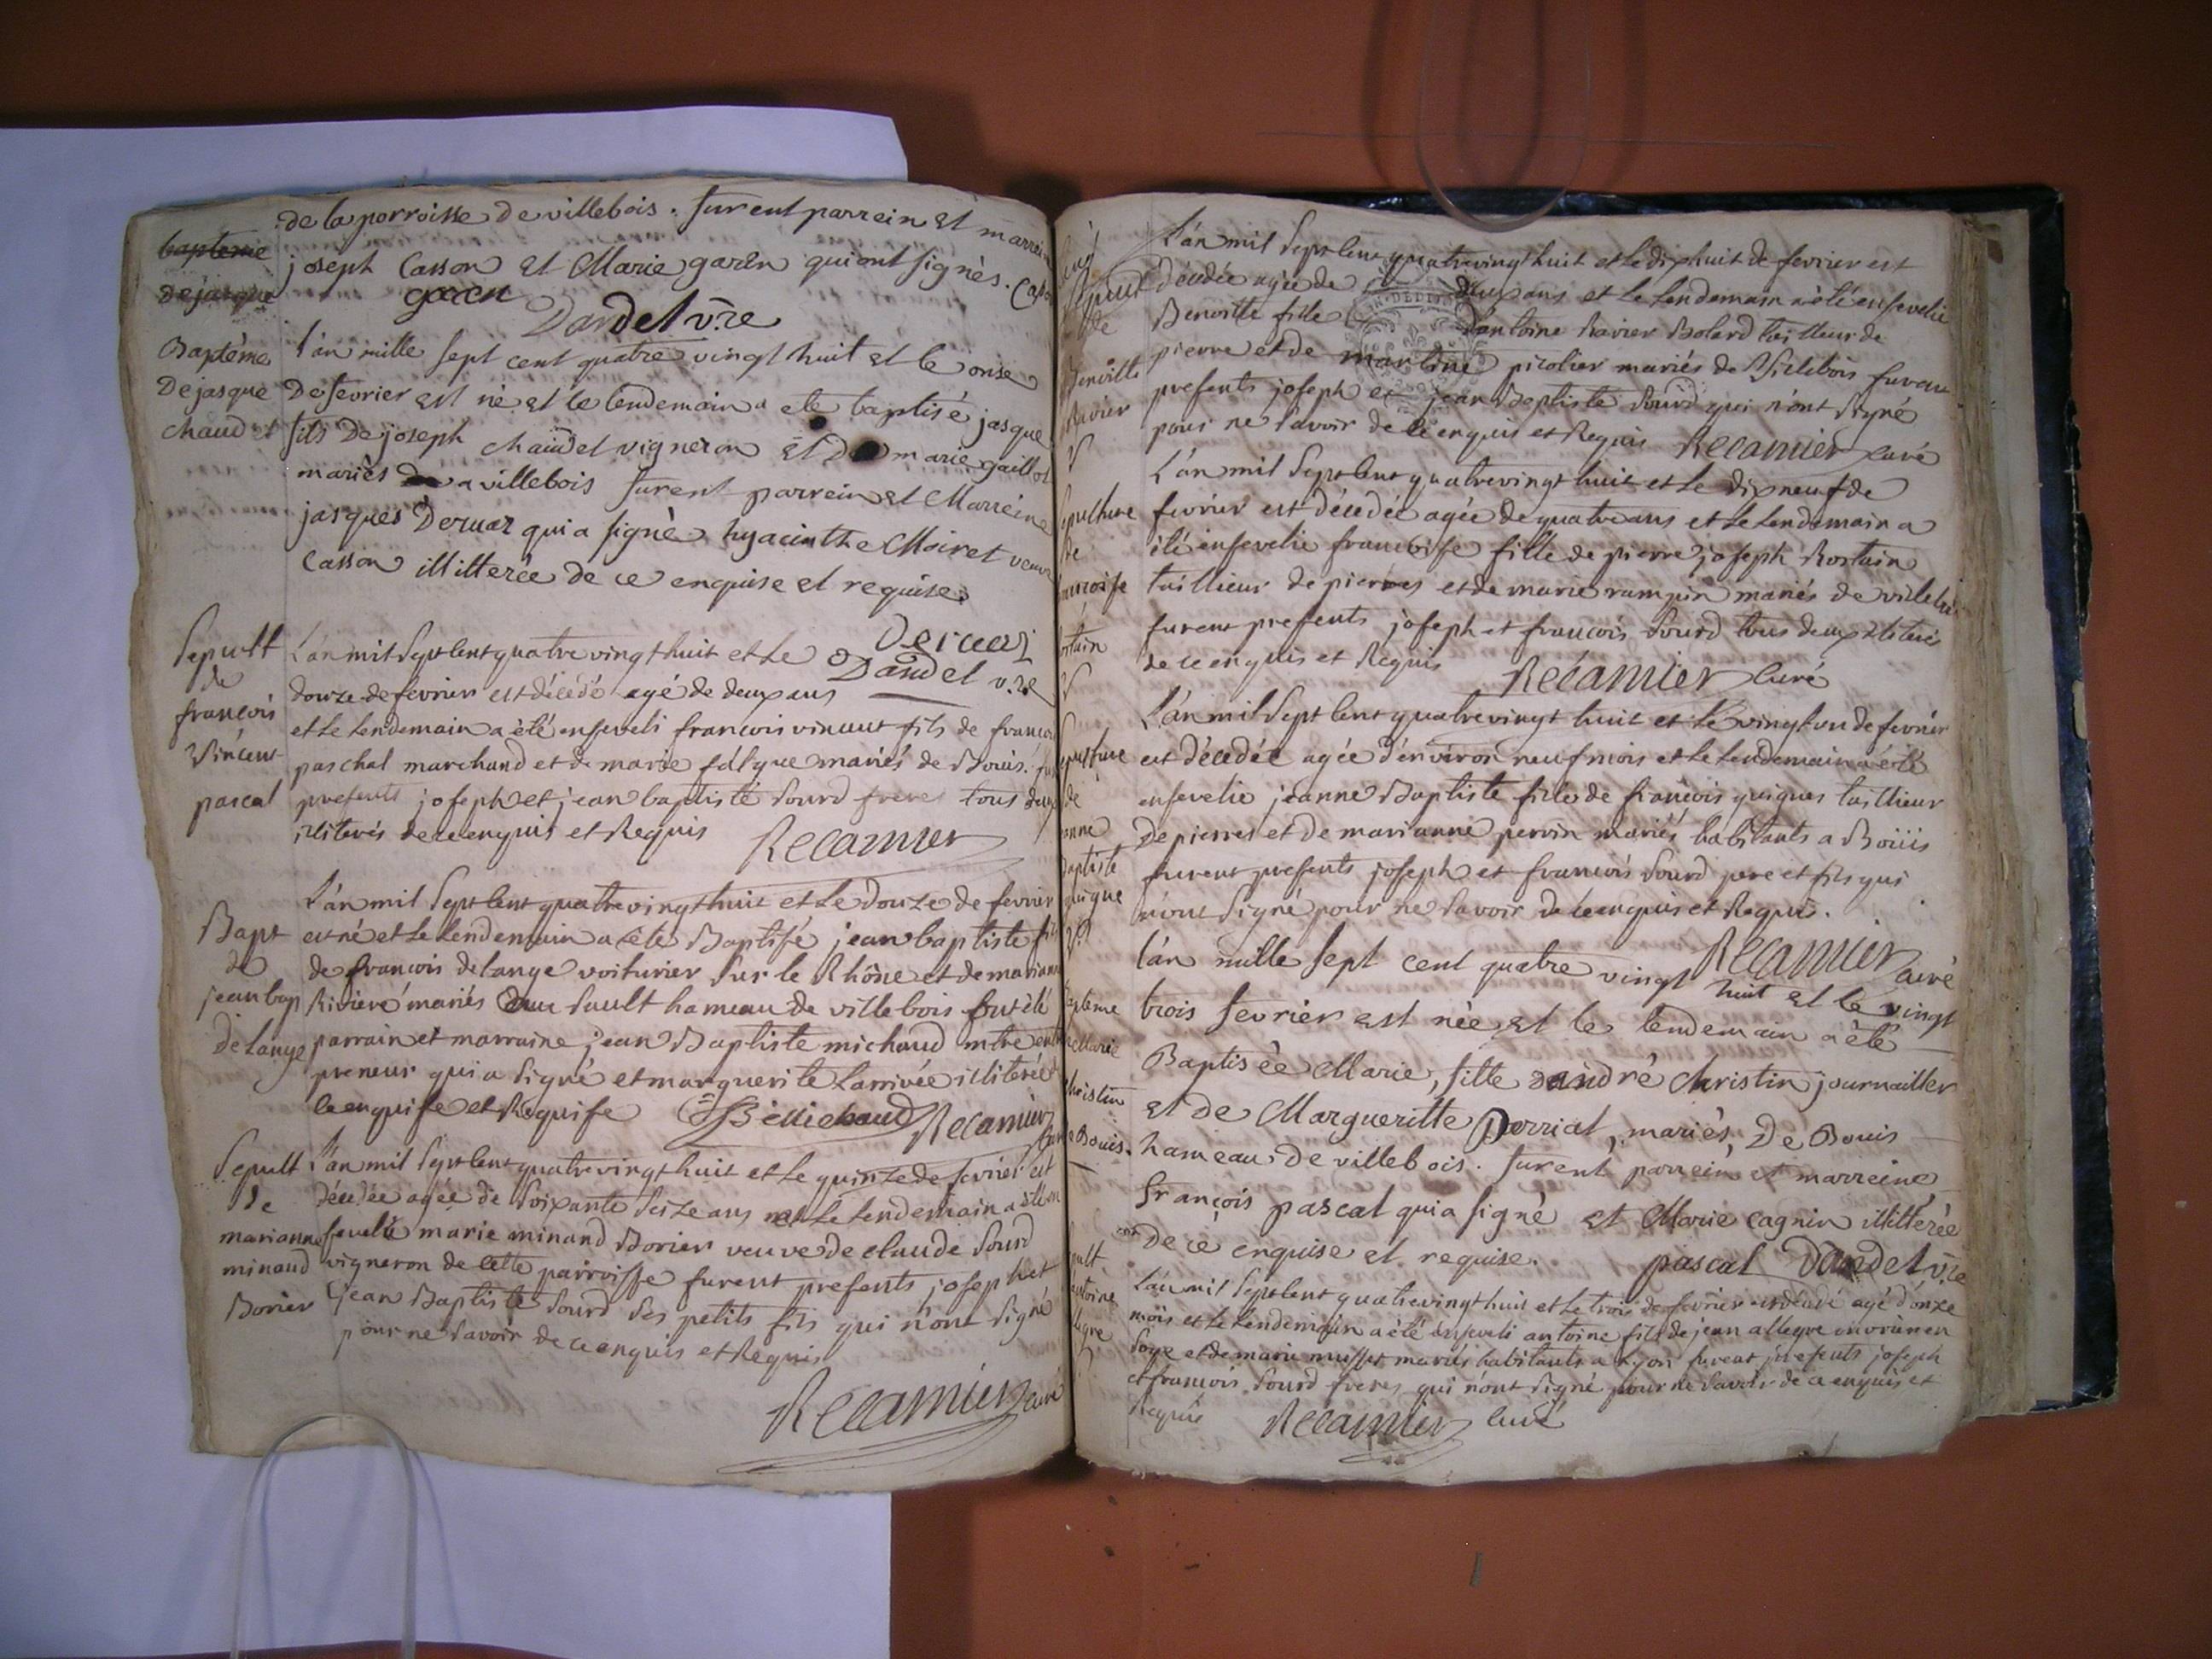 de la porroisse de villebois. furent parrein et marreine
joseph Casson et Marie garin qui ont signés.
Dandel v.re
bapteme
de jasque
Baptême
De jasque
chaudet
l'an mille sept cent quatre vingt huit et le onse
De fevrier est né et le lendemain a été baptisé jasque
fils De joseph chaudet vigneron et D marie gaillot
mariés a villebois furent parrein et Marreine
jasques Deruaz qui a signé hyacinthe Moiret veuve
Casson illitterée de ce enquise et requise.
Deruaz
Dandel v.re
Sepult
de
françois
Vincent
pascal
L'an mil Sept Cent quatre vingt huit et Le
douze de fevrier est décédé agé de deux ans
et Le Lendemain a été enseveli françois vincent fils de françois
paschal marchand et de marie falque mariés de Bouis.
presents joseph et jean baptiste Sourd freres tous deux
illiterés de ce enquis et Requis
Recamier
Bapt
de
jean bap
deLange
L'an mil Sept Cent quatre vingt huit et Le douze de fevrier
est né et Le Lendemain a été Baptisé jean baptiste fils
de françois delange voiturier Sur le Rhône et de marianne
Riviere mariés du Sault hameau de villebois ont été
parrain et marraine jean Baptiste michaud mtre entre
preneur qui a Signé et marguerite Larrivée illiterée
de ce enquise et Requise
JB Michaud Recamier
Sepult
de
marianne
minand
Borier
L'an mil Sept Cent quatre vingt huit et Le quinze de fevrier est
décédée agée de Soixante Seize ans et Le Lendemain a été en
sevelie marie minand Borier veuve de claude Sourd
vigneron de cette parroisse furent presents joseph et
jean Baptiste Sourd Ses petits fils qui n'ont Signé
pour ne Savoir de ce enquis et Requis
Recamier curé
de
Benoitte
Ravier
L'an mil Sept Cent quatre vingt huit et Le dix huit de fevrier est
décédée agée de deux ans et Le Lendemain a été ensevelie
Benoitte fille d'antoine Ravier Bolard tailleur de
pierre et de martine picolier mariés de Villebois furent
presents joseph et jean Baptiste Sourd qui n'ont Signé
pour ne Savoir de Ce enquis et Requis Recamier curé
sepulture
de
francoise
rostain
L'an mil Sept Cent quatre vingt huit et Le dix neuf de
fevrier est décédée agée de quatre ans et Le Lendemain a
été ensevelie francoise fille de pierre joseph Rostain
taillieur de pierres et de marie rampin mariés de villebois
furent presents joseph et françois Sourd tous deux illiterés
de ce enquis et Requis
Recamier Curé
sepulture
de
jeanne
Baptiste
guigue
L'an mil Sept Cent quatre vingt huit et Le vingt un de fevrier
est décédée agée d'environ neuf mois et Le Lendemain a été
ensevelie jeanne Baptiste fille de françois guigues taillieur
de pierres et de marianne perrin mariés habitants a Boüis
furent presents joseph et françois Sourd pere et fils qui
n'ont Signé pour ne Savoir de Ce enquis et Requis.
Recamier curé
Bapteme
de Marie
christin
de Bouis.
l'an mille sept cent quatre vingt huit et le vingt
trois fevrier est née et le lendemain a été
Baptisée Marie, fille d'andré christin journailler
et de Margueritte Perriat, mariés, De Bouis
hameau de villebois. furent parrein et marreine
françois pascal qui a signé et Marie cagnin illitterée
De ce enquise et requise. pascal Dandel v.re
sepult
antoine
allegre
L'an mil Sept Cent quatre vingt huit et Le trois de fevrier est décédé agé d'onze
mois et Le Lendemain a été enseveli antoine fils de jean allegre ouvrier en
Soye et de marie musset mariés habitants a Lyon furent presents joseph
et françois Sourd freres qui n'ont Signé pour ne Savoir de ce enquis et
Requis Recamier Curé